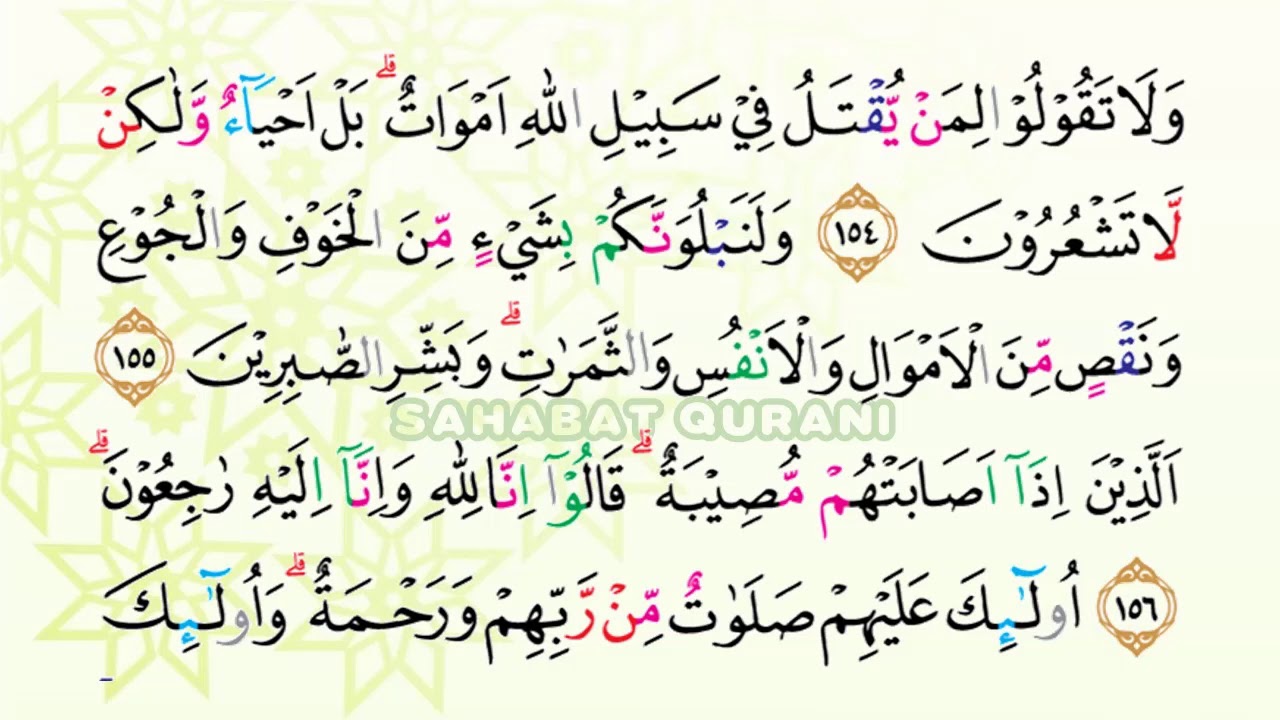 وَلَا تَقُوْلُوْا لِمَنْ يُّقْتَلُ فِيْ سَبِيْلِ اللهِ اَمْوَاتٌ ۗ بَلْ اَحْيَاۤءٌ وَّلٰكِنْ
لَّا تَشْعُرُوْنَ ١٥٤ وَلَنَبْلُوَنَّكُمْ بِشَيْءٍ مِّنَ الْخَوْفِ وَالْجُوْعِ
وَنَقْصٍ مِّنَ الْاَمْوَالِ وَالْاَنْفُسِ وَالثَّمَرٰتِ ۗ وَبَشِّرِ الصّٰبِرِيْنَ ١٥٥
SAHABAT QURANI
اَلَّذِيْنَ اِذَآ اَصَابَتْهُمْ مُّصِيْبَةٌ ۗ قَالُوْٓا اِنَّا لِلّٰهِ وَاِنَّآ اِلَيْهِ رٰجِعُوْنَ ۗ
١٥٦ اُولٰۤىِٕكَ عَلَيْهِمْ صَلَوٰتٌ مِّنْ رَّبِّهِمْ وَرَحْمَةٌ ۗ وَاُولٰۤىِٕكَ